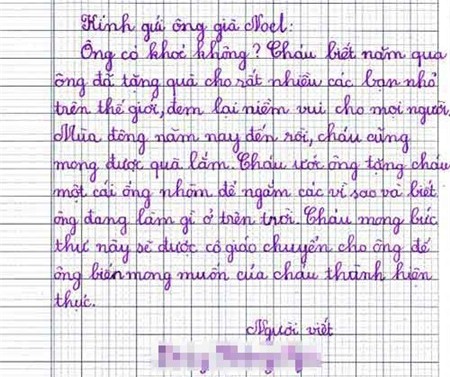 Kính gửi ông già Noel:
Ông có khoẻ không? Cháu biết năm qua
ông đã tặng quà cho rất nhiều các bạn nhỏ
trên thế giới, đem lại niềm vui cho mọi người.
Mùa đông năm nay đến rồi, cháu cũng
mong được quà lắm. Cháu ước ông tặng cháu
một cái ống nhòm để ngắm các vì sao và biết
ông đang làm gì ở trên trời. Cháu mong bức
thư này sẽ được cô giáo chuyển cho ông để
ông biến mong muốn của cháu thành hiện
thực.
Người viết